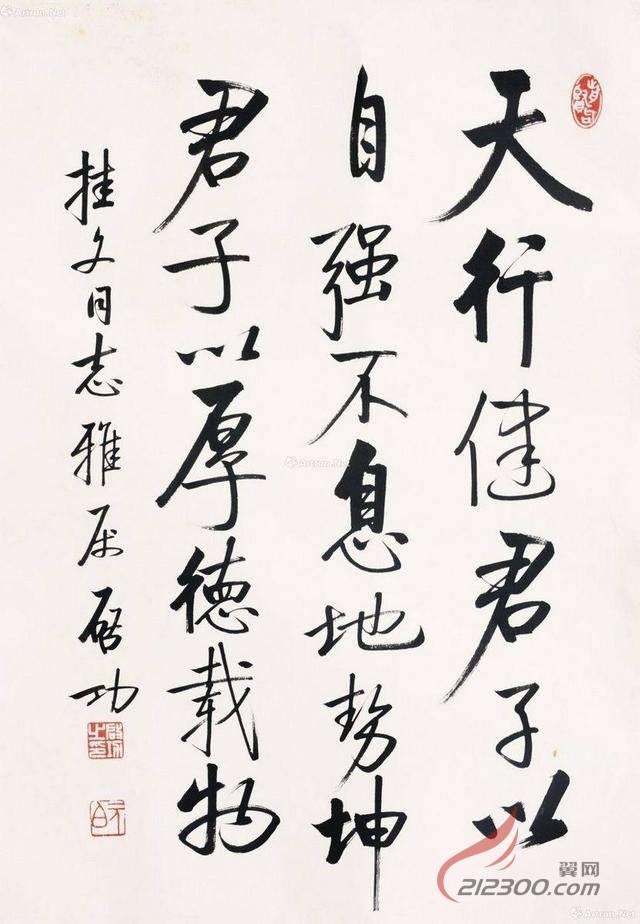 天行健君子以
自强不息地势坤
君子以厚德载物
挂文同志雅属启功
Artron.Net
Artron.Net
翼网
212300.com